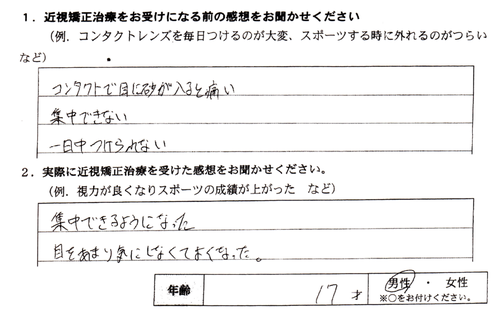 1．近視矯正治療をお受けになる前の感想をお聞かせください
（例．コンタクトレンズを毎日つけるのが大変、スポーツする時に外れるのがつらい
など）
コンタクトで目に砂が入ると痛い
集中できない
一日中つけられない
2．実際に近視矯正治療を受けた感想をお聞かせください。
（例．視力が良くなりスポーツの成績が上がった　など）
集中できるようになった
目をあまり気にしなくてよくなった。
年齢　17才　男性 ・ 女性
※○をお付けください。